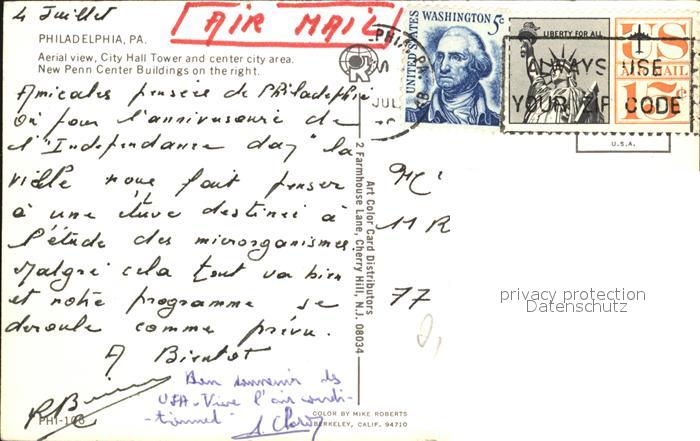 4 Juillet
AIR MAIL
PHILADELPHIA, PA.
Aerial view, City Hall Tower and center city area.
New Penn Center Buildings on the right.
UNITED STATES
WASHINGTON 5c
LIBERTY FOR ALL
US
AIR MAIL
15c
PHIA, PA
JUL
ALWAYS USE
YOUR ZIP CODE
U.S.A.
Amicales pensées de Philadelphie
où pour l'anniversaire de
l'"Independance day" la
ville nous fait penser
à une étuve destinée à
l'étude des microorganismes.
Malgré cela tout va bien
et notre programme se
deroule comme prévu.
A Bientot
Bon souvenir des
USA - Vive l'air condi-
-tionned
PHI-106
Art Color Card Distributors
2 Farmhouse Lane, Cherry Hill, N.J. 08034
COLOR BY MIKE ROBERTS
BERKELEY, CALIF. 94710
11 R
77
privacy protection
Datenschutz